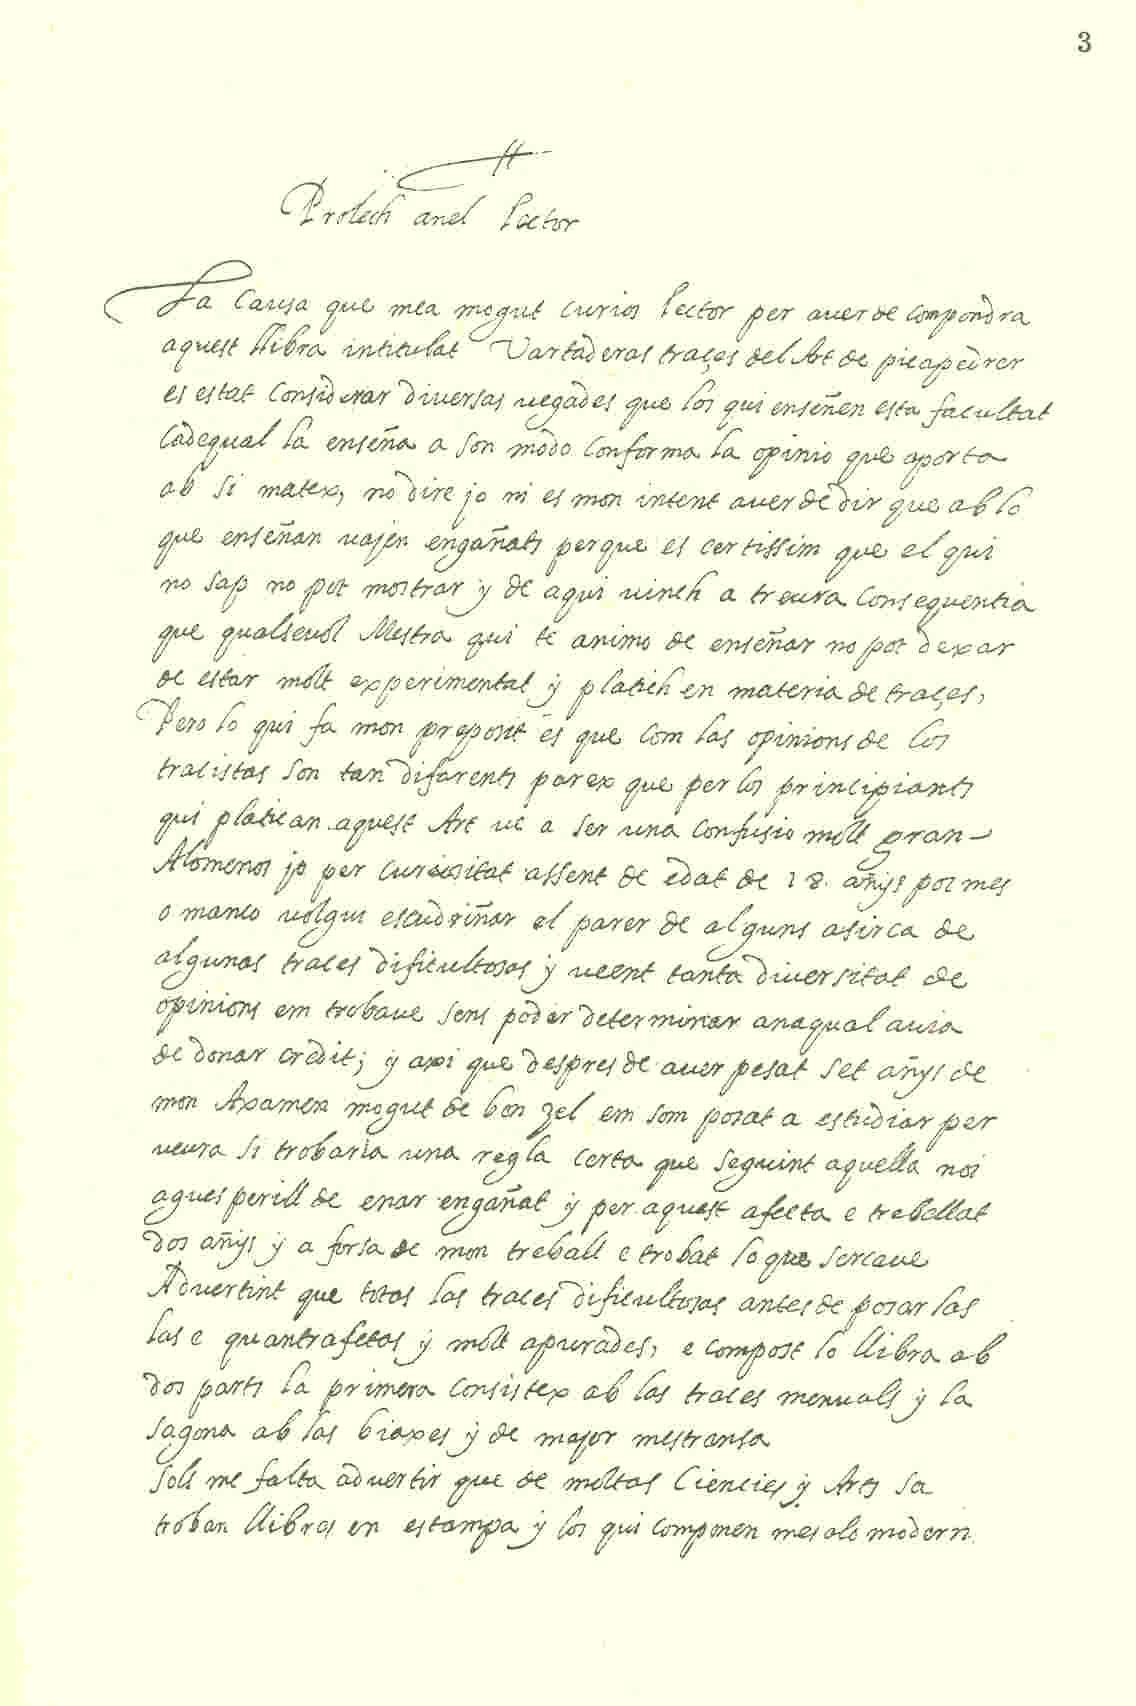 3
Prolech anel lector
La Causa que mea mogut curios lector per aver de compondra
aquest llibra intitulat Vartaderas traçes del Art de picapedrer
es estat Considerar diversas vegades que los qui enseñen esta facultat
Cadequal la enseña a son modo Conforma la opinio que aporta
ab si matex, no dire jo ni es mon intent aver de dir que ab lo
que enseñan vajen engañats perque es certissim que el qui
no sap no pot mostrar y de aqui vinch a treura Consequentia
que qualsevol Mestra qui te animo de enseñar no pot dexar
de estar molt experimental y platich en materia de traçes,
Pero lo qui fa mon preposit es que Com las opinions de los
tracistas son tan difarents parex que per los principiants
qui platican aquest Art ve a ser una Confusio molt gran
Alomenos jo per Curiositat assent de edat de 18. añys poi mes
o manco volgui escudriñar el parer de alguns asirca de
algunas traces dificultosas y veent tanta diversitat de
opinions em trobave sens poder determinar anaqual avia
de donar credit; y axi que despres de aver pesat set añys de
mon Axamen mogut de bon zel em som posat a estudiar per
veura si trobaria una regla certa que seguint aquella noi
agues perill de enar engañat y per aquest afecta e treballat
dos añys y a forsa de mon treball e trobat lo que sercave
Advertint que totas las traces dificultosas antes de posar las
las e quantrafetas y molt apurades, e compost lo llibra ab
dos parts la primera Consistex ab las traces menuals y la
sagona ab las biaxes y de major mestransa
sols me falta advertir que de moltas Ciencies y Arts sa
troban llibras en estampa y los qui componen mes alo modern